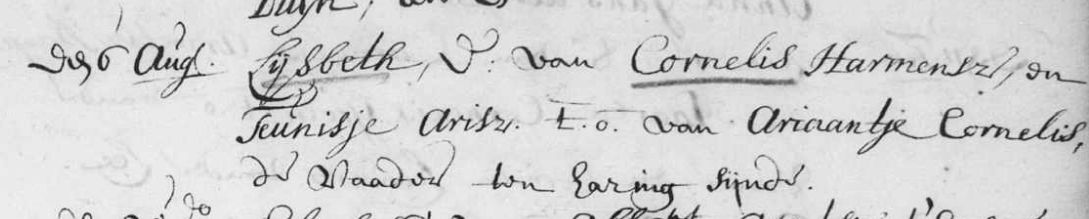 Den 6 Augs. Lijsbeth, D. van Cornelis Harmensz, en
Teunisje Arisz. t.o. van Ariaantje Cornelis,
de Vaader ten haring sijnde.